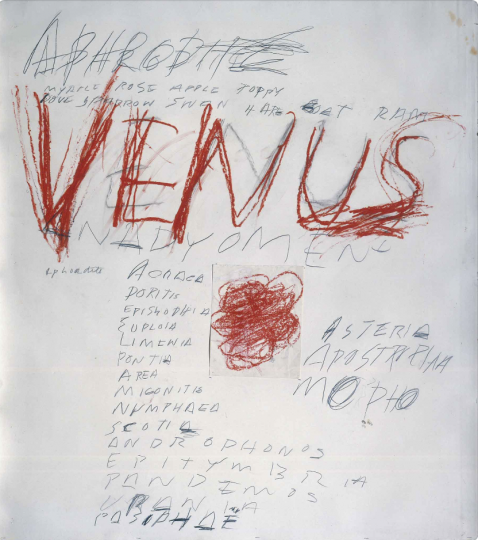 APHRODITE
MYRTLE ROSE APPLE POPPY
DOVE SPARROW SWAN HARE GOAT RAM
VENUS
ANADYOMENE
DORITIS
EPISTROPHIA
EUPLOIA
LIMENIA
PONTIA
AREA
MIGONITIS
NUMPHAEA
SCOTIA
ANDROPHONOS
EPITYMBRIA
PANDEMOS
URANIA
PASIPHAE
ASTERIA
APOSTROPHIA
MORPHO